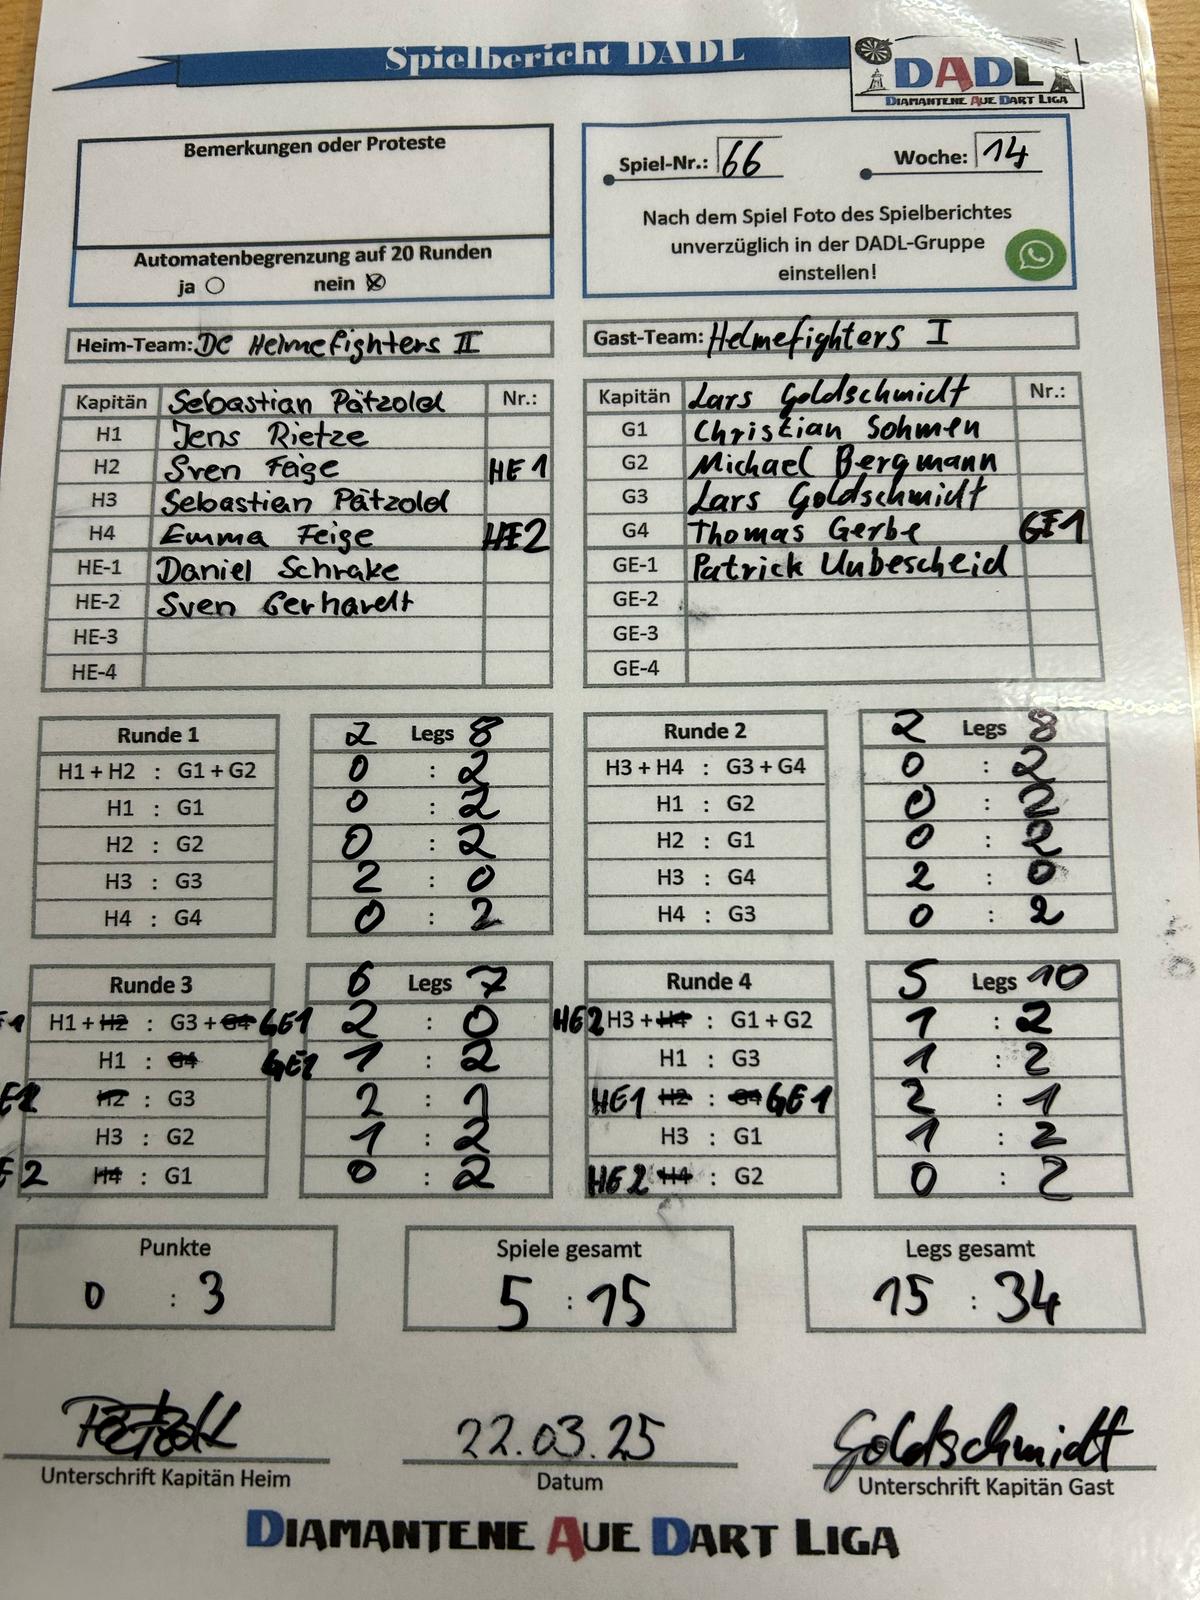 Spielbericht DADL
DADL
DIAMANTENE AUE DART LIGA
Bemerkungen oder Proteste
Automatenbegrenzung auf 20 Runden
ja nein
Spiel-Nr.: 66 Woche: 14
Nach dem Spiel Foto des Spielberichtes
unverzüglich in der DADL-Gruppe
einstellen!
Heim-Team: DC Helmefighters II
Gast-Team: Helmefighters I
Kapitän Sebastian Pätzold Nr.:
H1 Jens Rietze
H2 Sven Feige HE1
H3 Sebastian Pätzold
H4 Emma Feige HE2
HE-1 Daniel Schrake
HE-2 Sven Gerhardt
HE-3
HE-4
Kapitän Lars Goldschmidt Nr.:
G1 Christian Sohmen
G2 Michael Bergmann
G3 Lars Goldschmidt
G4 Thomas Gerbe GE1
GE-1 Patrick Unbescheid
GE-2
GE-3
GE-4
Runde 1 2 Legs 8
H1 + H2 : G1 + G2 0 : 2
H1 : G1 0 : 2
H2 : G2 0 : 2
H3 : G3 2 : 0
H4 : G4 0 : 2
Runde 2 2 Legs 8
H3 + H4 : G3 + G4 0 : 2
H1 : G2 0 : 2
H2 : G1 0 : 2
H3 : G4 2 : 0
H4 : G3 0 : 2
Runde 3 6 Legs 7
H1 + H2 : G3 + G4 GE1 2 : 0
H1 : G4 GE1 1 : 2
H2 : G3 2 : 1
H3 : G2 1 : 2
H4 : G1 0 : 2
Runde 4 5 Legs 10
HE2 H3 + H4 : G1 + G2 1 : 2
H1 : G3 1 : 2
HE1 H2 : G4 GE1 2 : 1
H3 : G1 1 : 2
HE2 H4 : G2 0 : 2
Punkte
0 : 3
Spiele gesamt
5 : 15
Legs gesamt
15 : 34
22.03.25
Goldschmidt
Unterschrift Kapitän Heim
Datum
Unterschrift Kapitän Gast
DIAMANTENE AUE DART LIGA